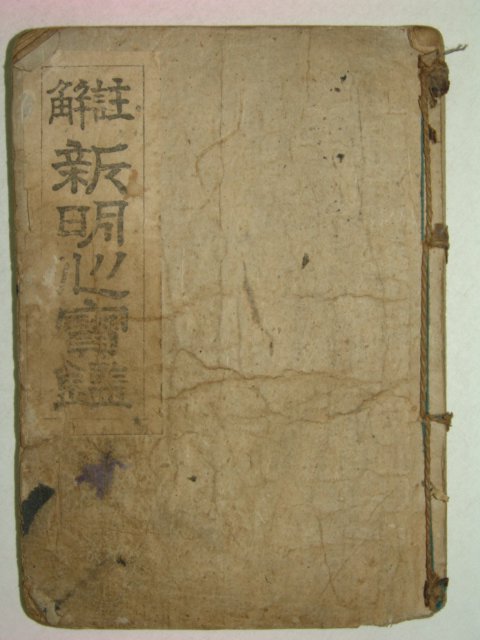 註解
新明心寶鑑